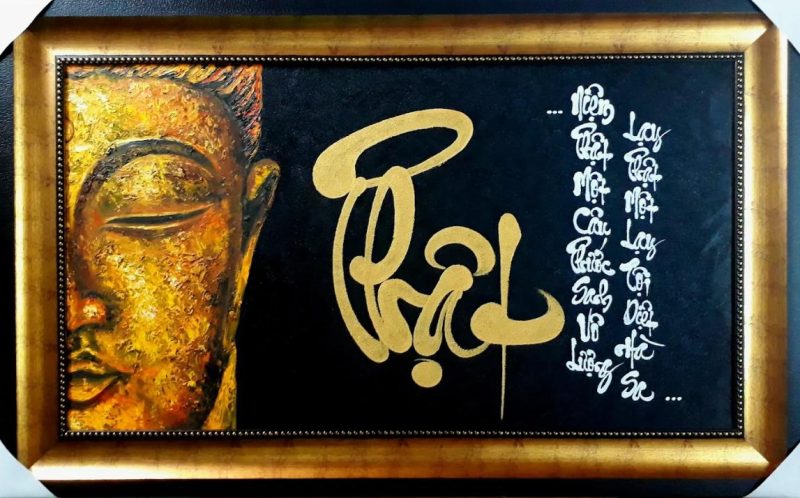 Phật
... Niệm Phật Một Câu Phước Sanh Vô Lượng
Lạy Phật Một Lạy Tội Diệt Hà Sa ...